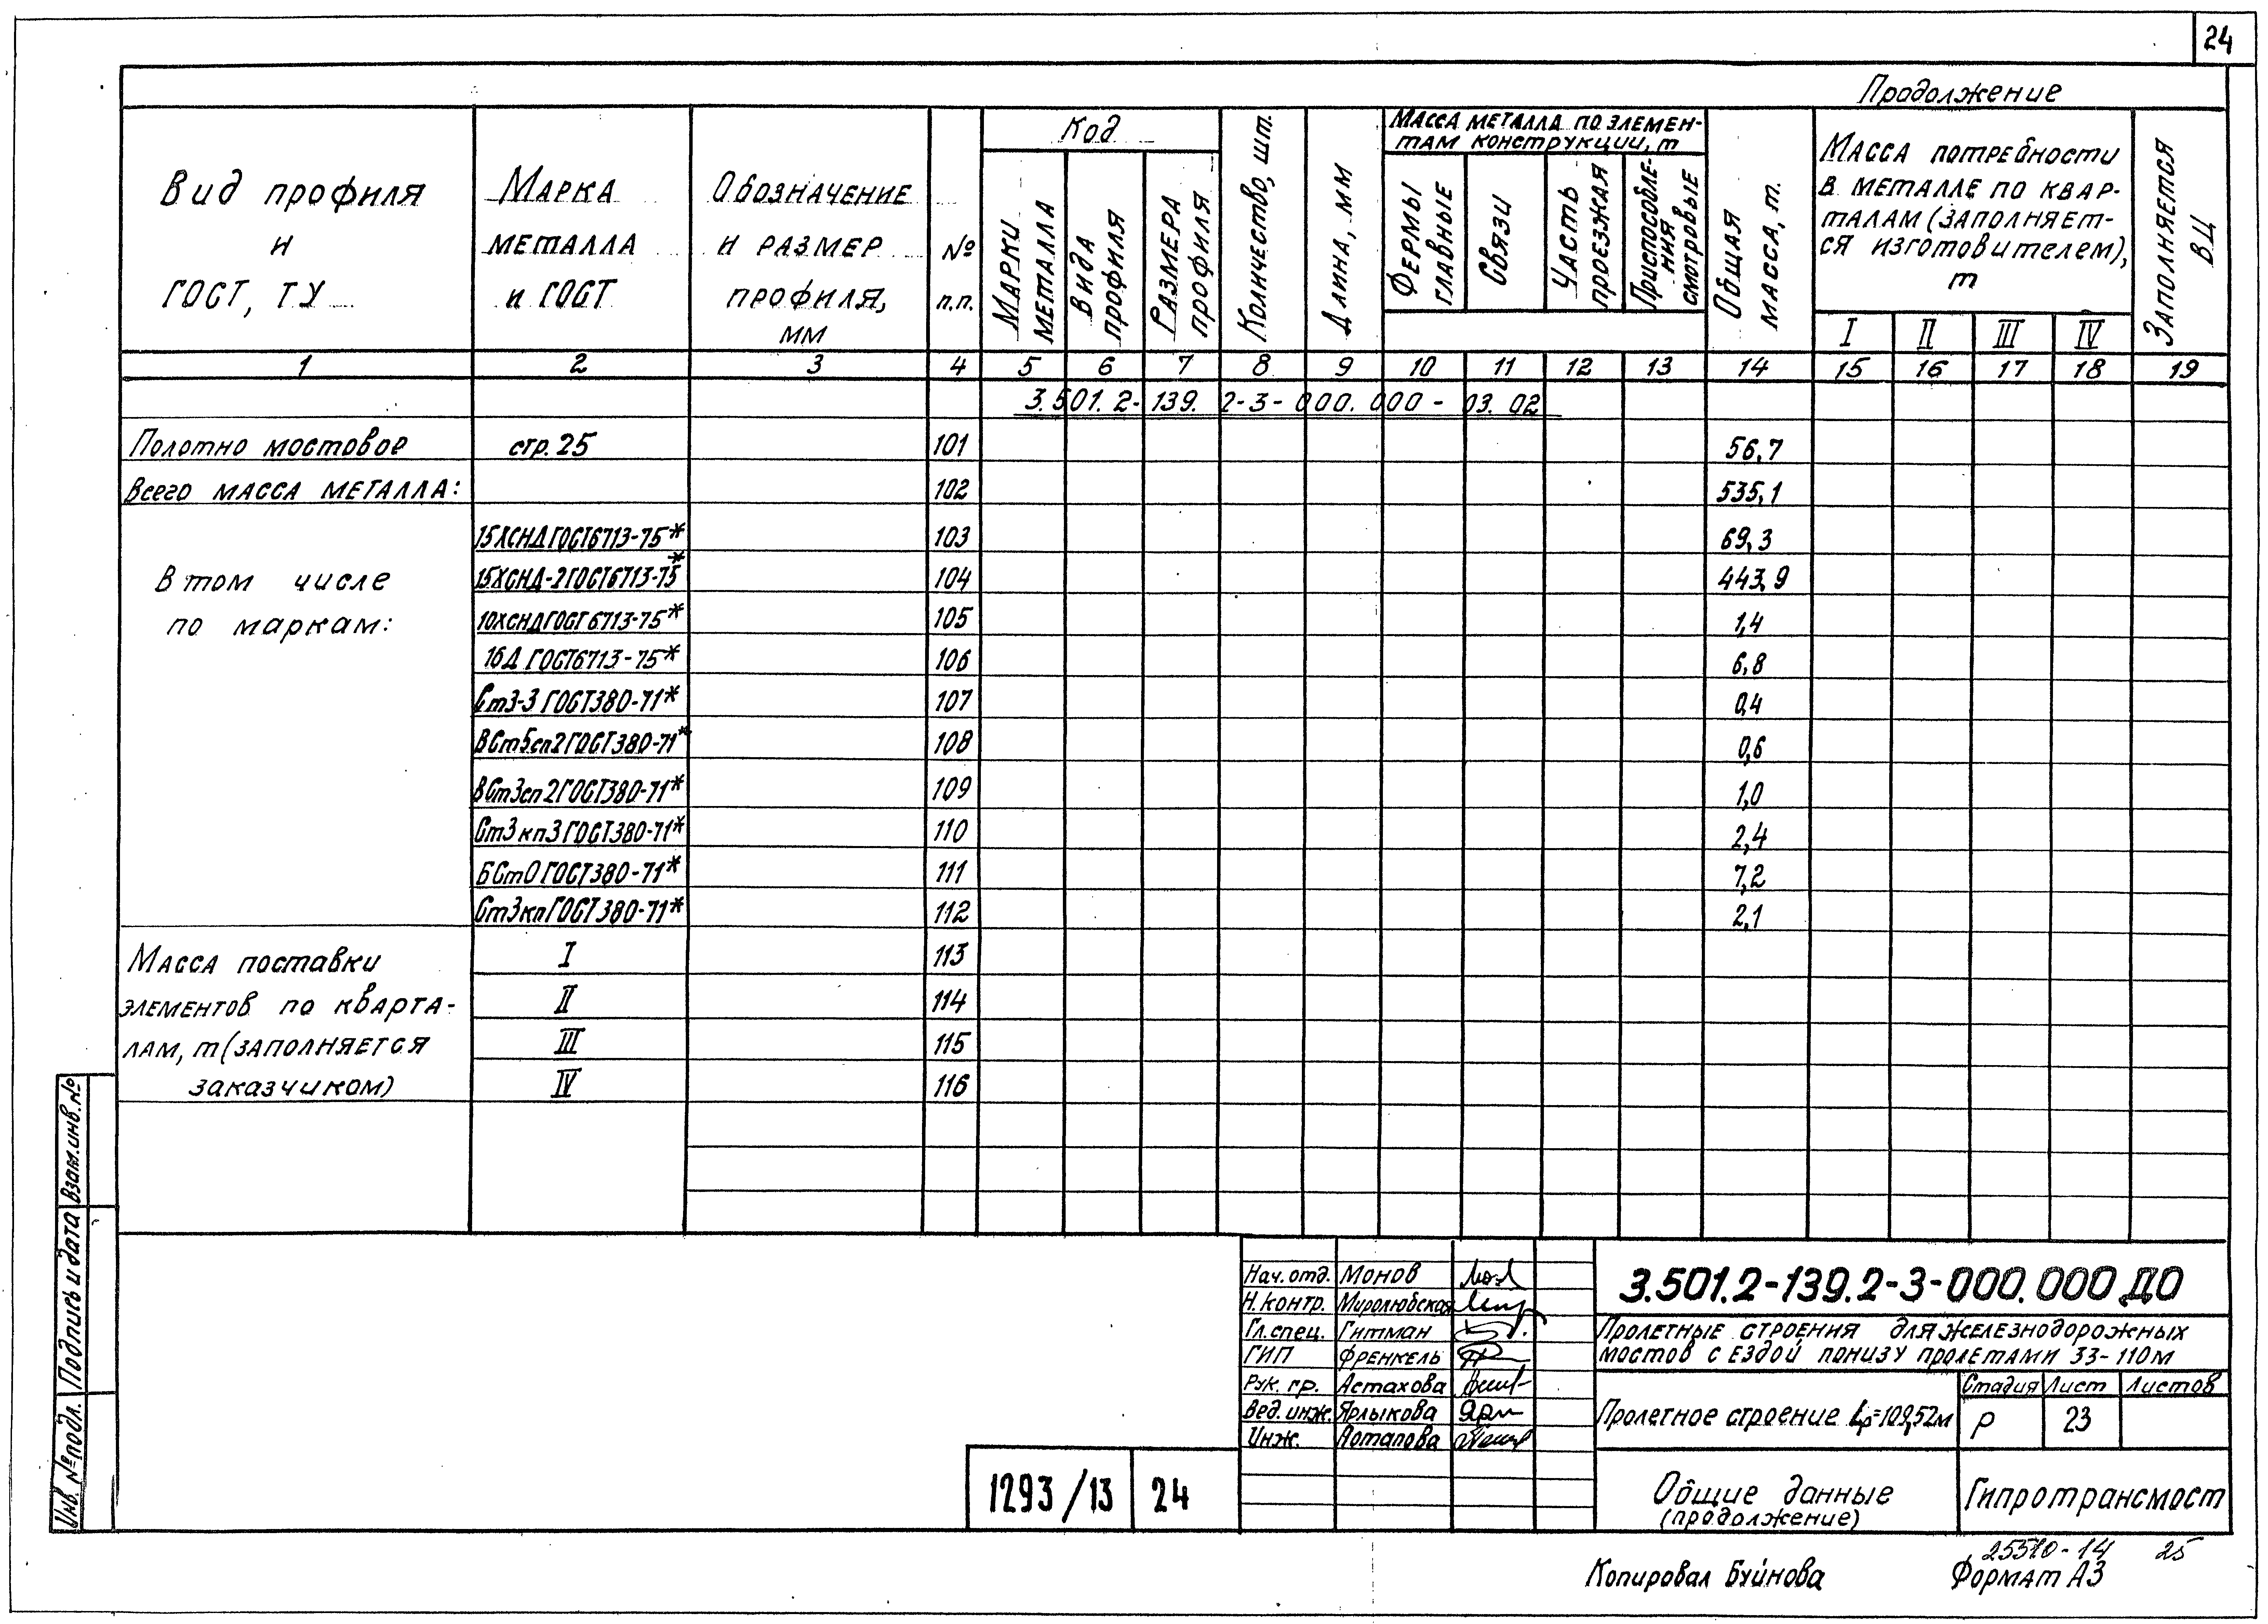 24
Продолжение
Вид профиля и ГОСТ, ТУ
Марка металла и ГОСТ
Обозначение и размер профиля, мм
№ п.п.
Код
Марки металла
Вида профиля
Размера профиля
Количество, шт.
Длина, мм
Масса металла по элемен-
там конструкции, т
Фермы главные
Связи
Часть проезжая
Приспособле-
ния смотровые
Общая масса, т.
Масса потребности
в металле по квар-
талам (заполняет-
ся изготовителем),
т
I II III IV
Заполняется ВЦ
1 2 3 4 5 6 7 8 9 10 11 12 13 14 15 16 17 18 19
3.501.2-139.2-3-000.000-03.02
Полотно мостовое стр. 25 101 56,7
Всего масса металла: 102 535,1
15ХСНД ГОСТ6713-75* 103 69,3
В том числе 15ХСНД-2 ГОСТ6713-75* 104 443,9
по маркам: 10ХСНД ГОСТ6713-75* 105 1,4
16Д ГОСТ6713-75* 106 6,8
Ст3-3 ГОСТ380-71* 107 0,4
ВСт5сп2 ГОСТ380-71* 108 0,6
ВСт3сп2 ГОСТ380-71* 109 1,0
Ст3кп3 ГОСТ380-71* 110 2,4
БСт0 ГОСТ380-71* 111 7,2
Ст3кп ГОСТ380-71* 112 2,1
Масса поставки I 113
элементов по кварта- II 114
лам, т (заполняется III 115
заказчиком) IV 116
Инв. № подл. Подпись и дата Взам. инв. №
Нач. отд. Монов
Н. контр. Миролюбская
Гл. спец. Гитман
ГИП Френкель
Рук. гр. Астахова
Вед. инж. Ярлыкова
Инж. Потапова
3.501.2-139.2-3-000.000 ДО
Пролетные строения для железнодорожных
мостов с ездой понизу пролетами 33-110м
Пролетное строение Lр=109,52м
Стадия Лист Листов
Р 23
Общие данные
(продолжение)
Гипротрансмост
1293/13 24
25510-14 25
Копировал Буйнова Формат А3